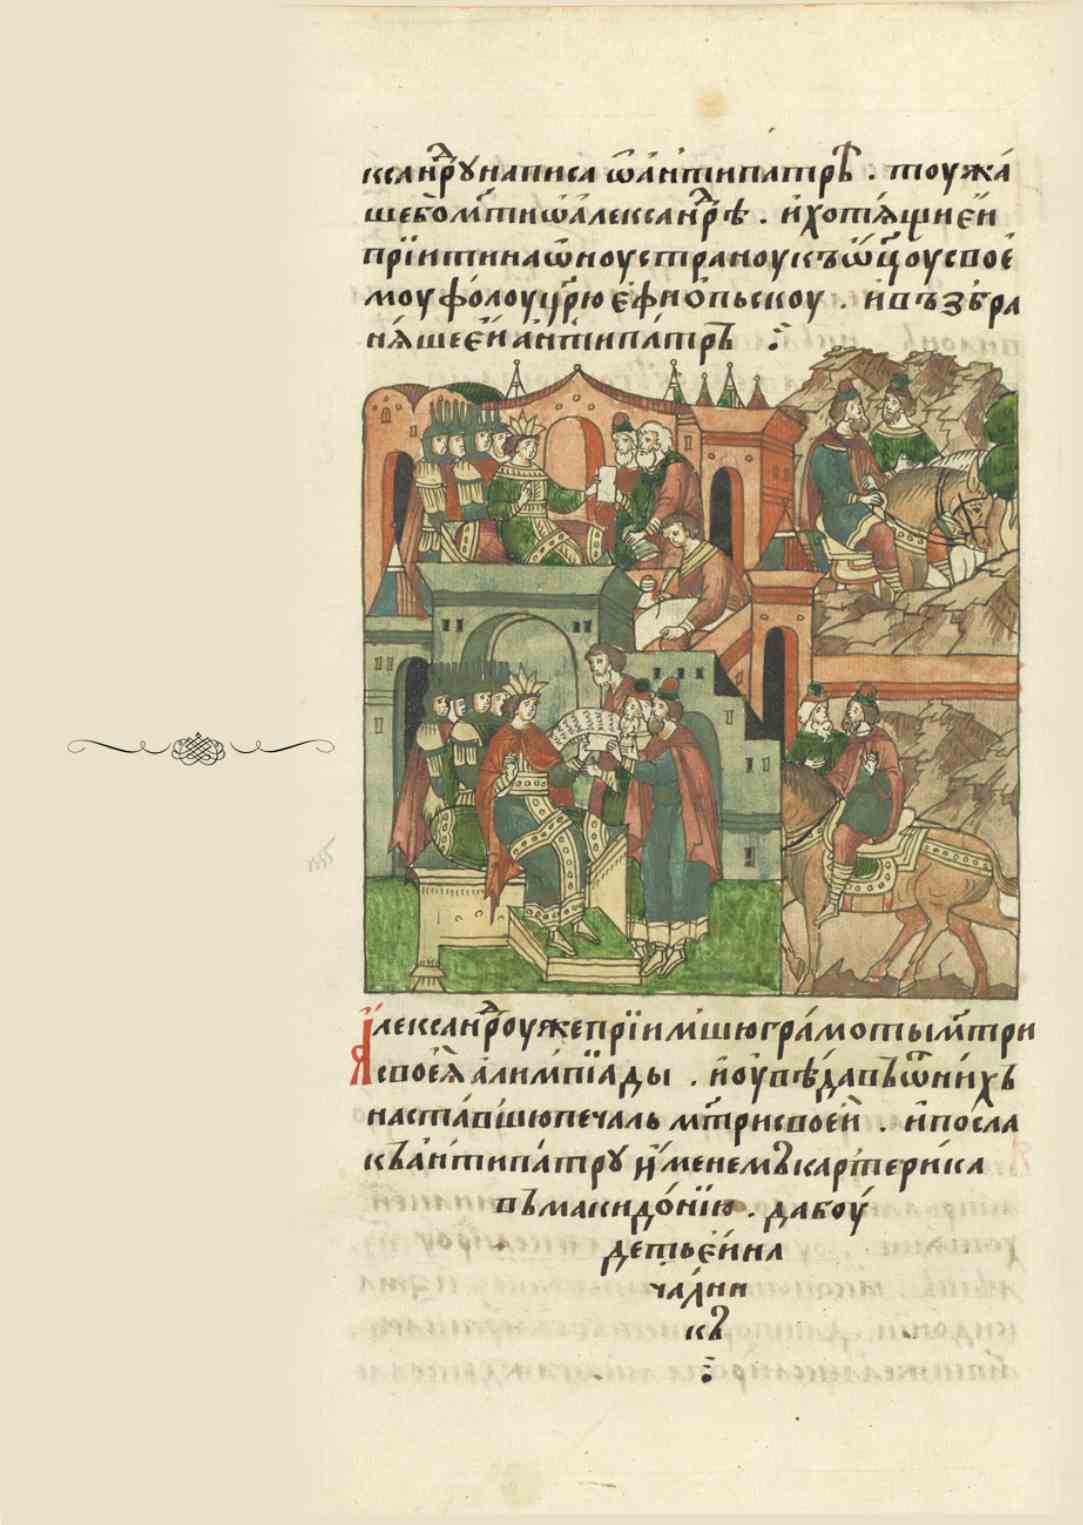 ксанⷣрꙋ написа ѿ антипатрѣ . тоужа
шебом҃ти ѡ алексанⷣрѣ . и хотѧщи еи
прїити на ѡ҆ноу страноу къ ѿц҃оу свое
моу фолоу цр҃ю еѳиопьскоу . и възбра
нѧше еи антипатръ ⁘
Алексанⷣроу же прїимшю грамоты мт҃ри
своеѧ алимпїады . и оувѣдавъ ѿ них
наставшю печаль мт҃ри своеи . и посла
къ антипатру именемъ картерика
въ макидонїю . да боу
деть еи на
чални
къ
⁘